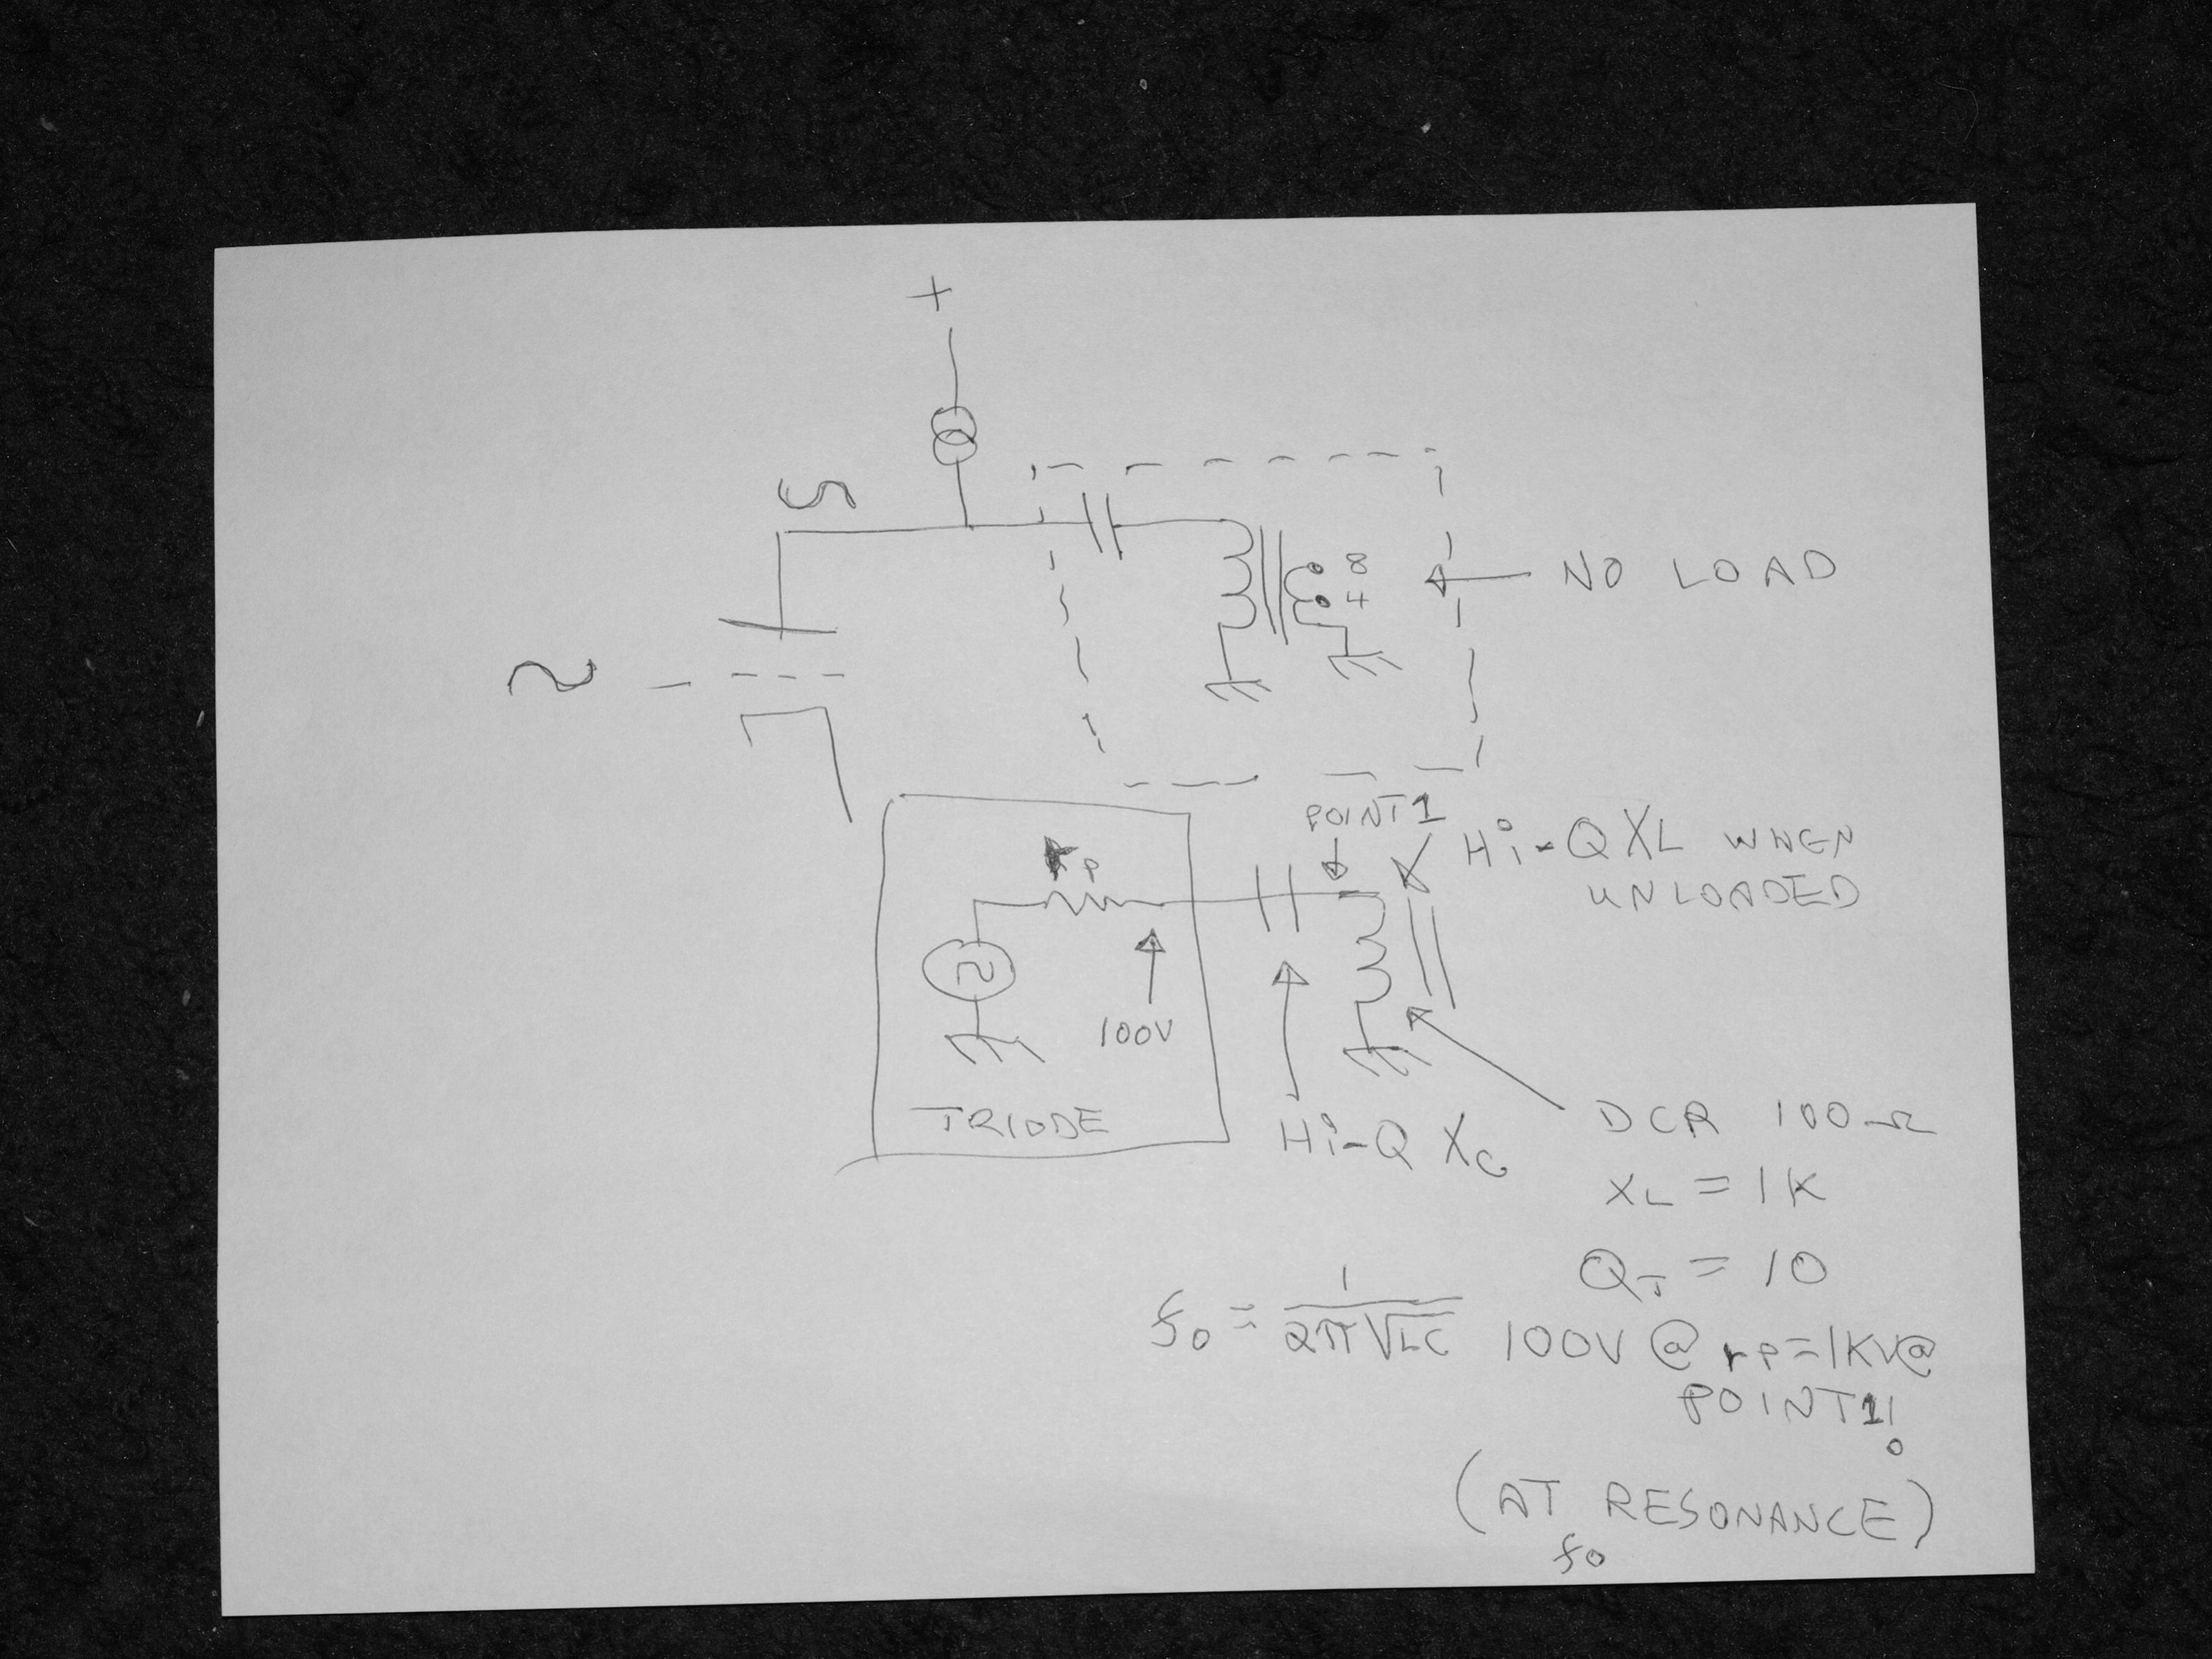 +
8
4
NO LOAD
POINT 1
Hi-Q XL WHEN
UNLOADED
rp
100V
TRIODE
Hi-Q XC
DCR 100Ω
XL = 1K
QT = 10
f0 = 1/2π√LC
100V @ rp=1KV@
POINT1!
(AT RESONANCE)
f0